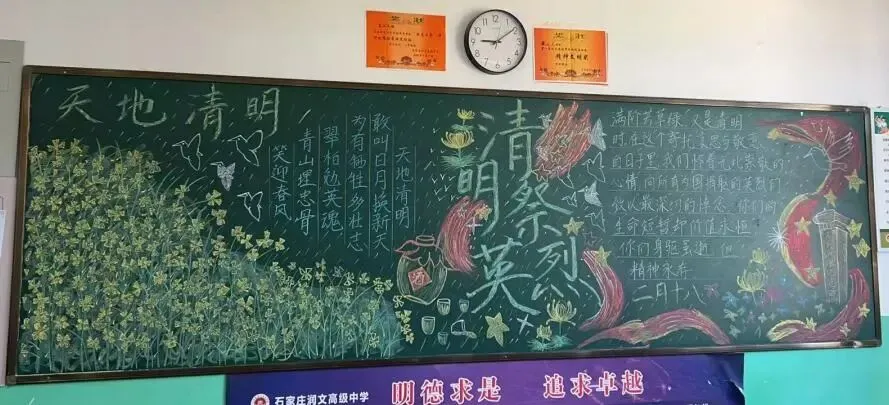 天地清明
天地清明
敢叫日月换新天
为有牺牲多壮志
翠柏勉英魂
青山埋忠骨
笑迎春风
清明
祭烈
英
酒
满阶芳草绿 又是清明
时,在这个寄托哀思与敬意
的日子里,我们怀着无比崇敬的
心情,向所有为国捐躯的英烈们
致以最深切的悼念,你们的
生命短暂却价值永恒
你们身躯虽逝,但
精神永存
二月十八
石家庄润文高级中学
明德求是 追求卓越